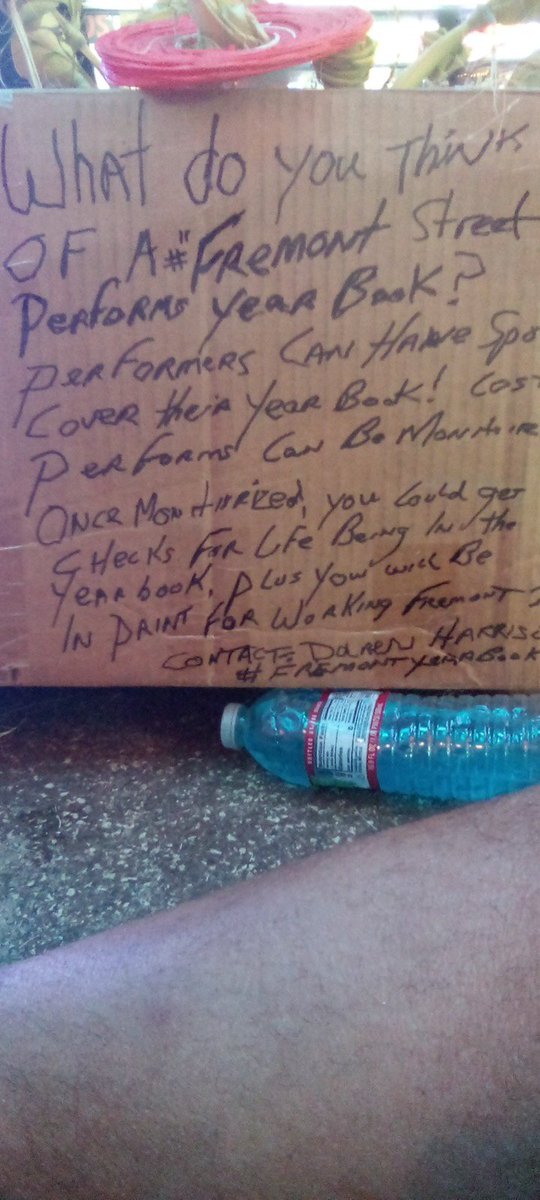 What do you Think
OF A #"Fremont Street
Performs Year Book?
Performers CAN HAVE Spo
Cover their Year Book! Cos
Performs Can Be Monitize
Once Monitirized, you Could get
CHecks For Life Being In the
Yearbook, plus you will Be
In Print For Working Fremont
Contact: Harriso
# Fremont Year Book